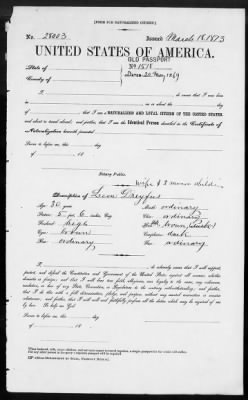 [FORM FOR NATURALIZED CITIZEN.]
No. 28003 Issued March 18 1873
UNITED STATES OF AMERICA.
OLD PASSPORT
State of No 1515
County of Dated 20 May 1869
I, do swear that I was born
that I am a NATURALIZED AND LOYAL CITIZEN OF THE UNITED STATES,
and about to travel abroad; and further, that I am the Identical Person described in the Certificate of
Naturalization herewith presented
Sworn to before me, this day
of 18
Notary Public.
Wife & 3 minor child
Description of Leon Dreyfus
Age: 36 years Mouth: ordinary
Stature: 5 feet 6 inches, Eng. Chin: ordinary
Forehead: high Hair: brown
Eyes: brown Complexion: dark
Nose: ordinary Face: ordinary
I, do solemnly swear that I will support,
protect, and defend the Constitution and Government of the United States against all enemies, whether
domestic or foreign; and that I will bear true faith, allegiance, and loyalty to the same, any ordinance,
resolution, or law of any State, Convention, or Legislature to the contrary notwithstanding; and further,
that I do this with a full determination, pledge, and purpose, without any mental reservation or evasion
whatsoever; and further, that I will well and faithfully perform all the duties which may be required of
me by law: So help me God.
Sworn to before me, this day
of 18